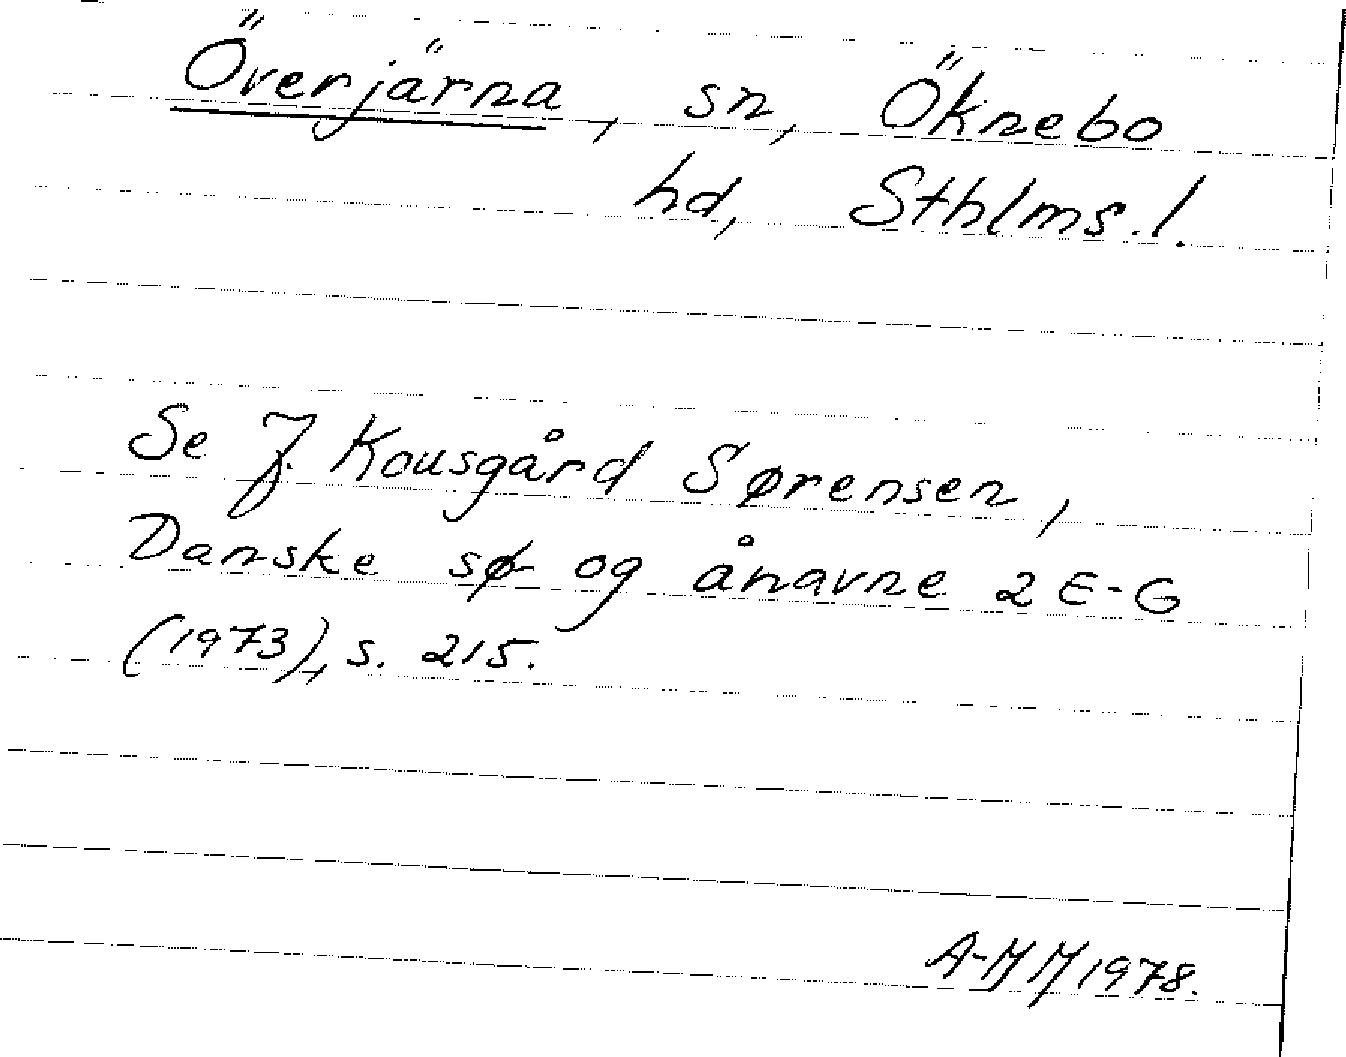 Överjärna, sn, Öknebo
hd, Sthlms. l.
Se J. Kousgård Sørensen,
Danske sø- og ånavne 2 E-G
(1973), s. 215.
1978.